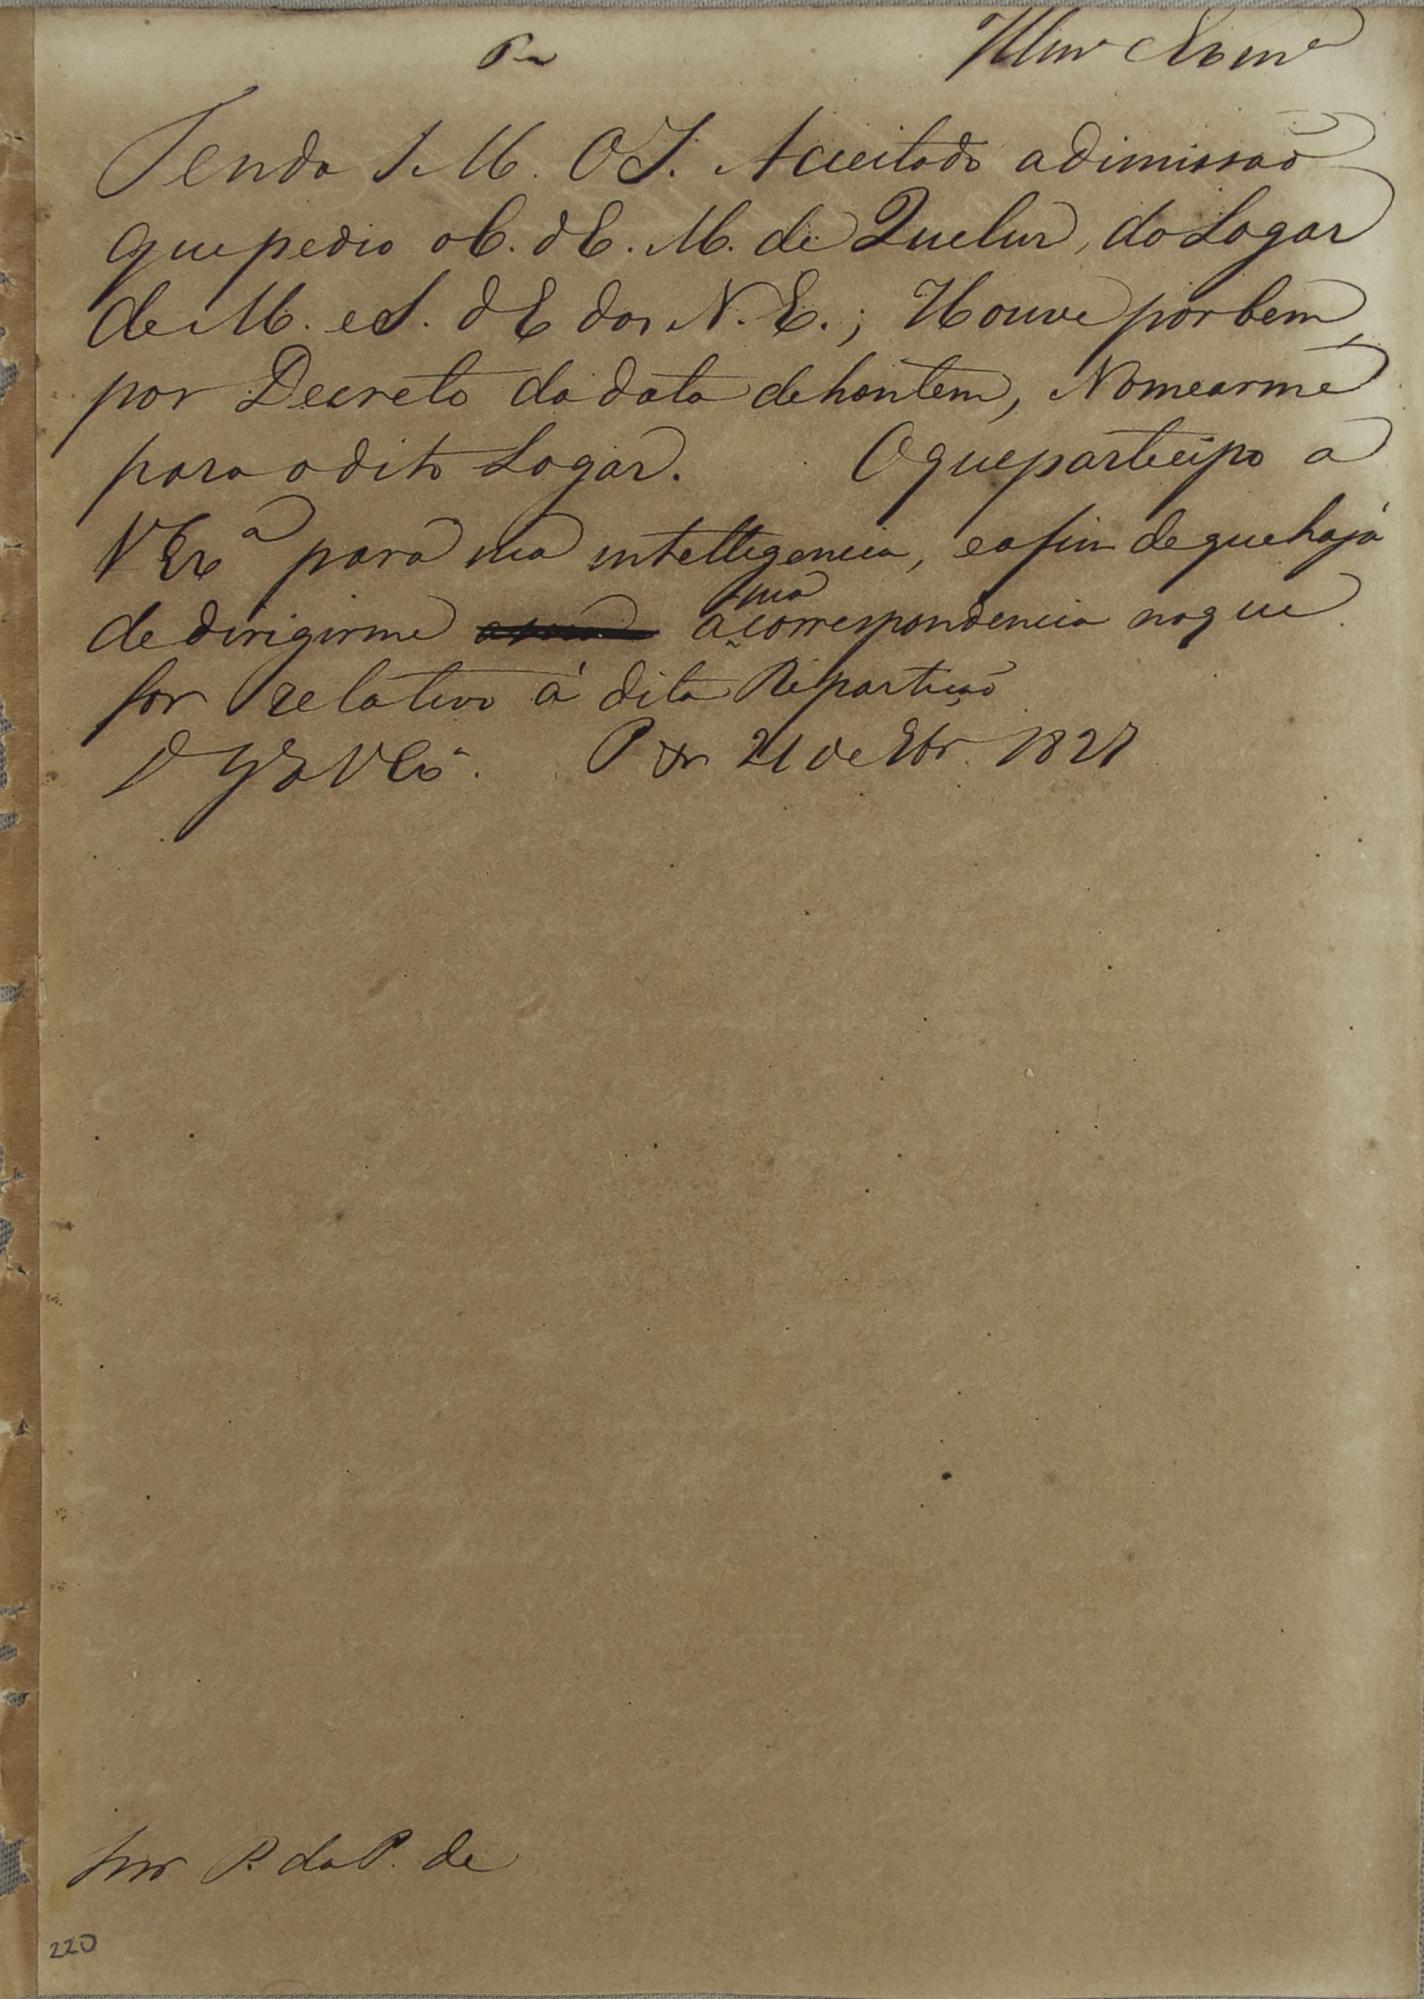 Illmo Exmo
Tendo S. M. O I. Acceitado a dimissaõ
que pedio o C. d E. M. de Queluz, do Logar
de M. e S. d E dos N. E.; Houve por bem,
por Decreto da data de hontem, Nomearme
para o dito Logar. O que participo a
V Exa para sua intelligencia, e a fim de que haja
de dirigirme a sua correspondencia no que
for relativo á dita Repartiçaõ
D G a V Exa. P em 21 de 9br. 1827
Snr P. da P. de
220